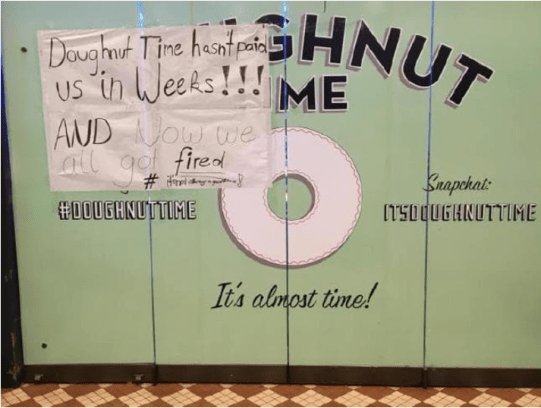 Doughnut Time hasn't paid
us in Weeks!!!
AND Now we
all got fired
#
GHNUT
IME
#DOUGHNUTTIME
Snapchat:
ITSDOUGHNUTTIME
It's almost time!